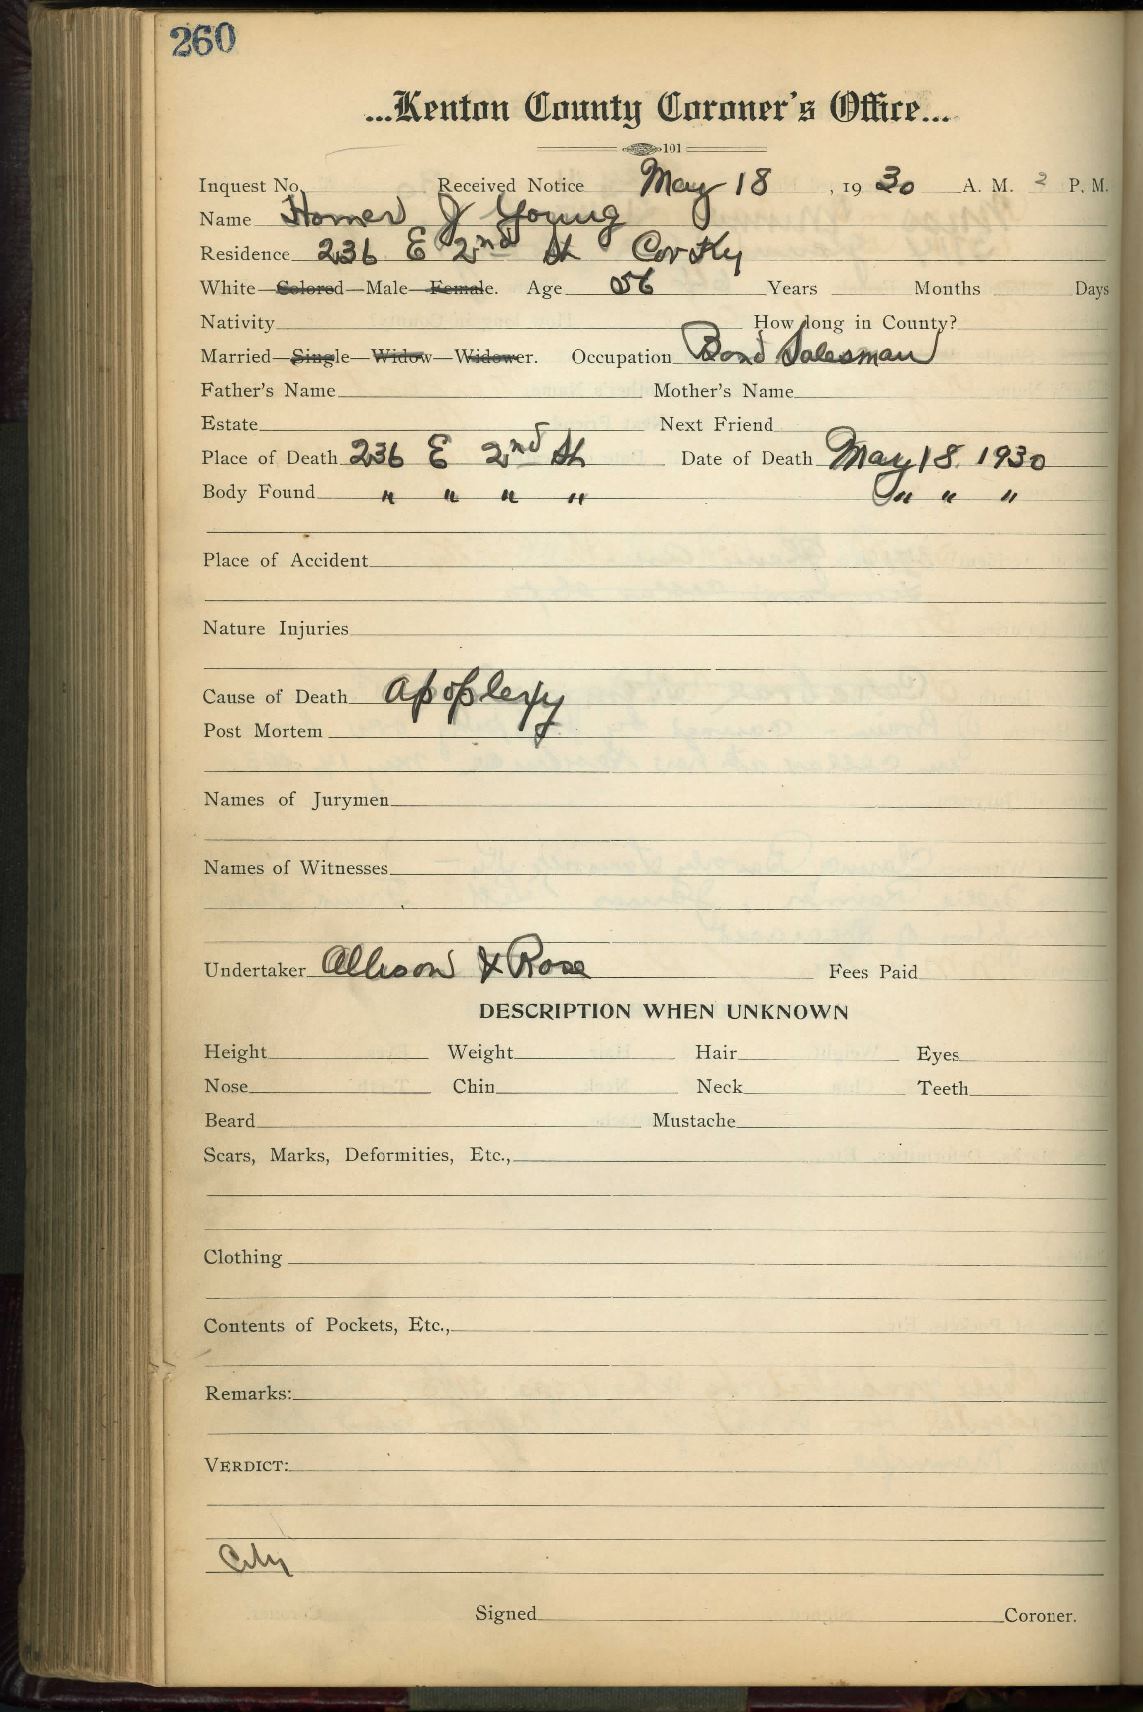 260
...Kenton County Coroner's Office...
101
Inquest No. Received Notice May 18, 1930 A. M. 2 P. M.
Name Homer J Young
Residence 236 E 2nd St Cov Ky
White—Colored—Male—Female. Age 56 Years Months Days
Nativity How long in County?
Married—Single—Widow—Widower. Occupation Bond Salesman
Father's Name Mother's Name
Estate Next Friend
Place of Death 236 E 2nd St Date of Death May 18 1930
Body Found " " " " " " "
Place of Accident
Nature Injuries
Cause of Death apoplexy
Post Mortem
Names of Jurymen
Names of Witnesses
Undertaker Allison & Rose Fees Paid
DESCRIPTION WHEN UNKNOWN
Height Weight Hair Eyes
Nose Chin Neck Teeth
Beard Mustache
Scars, Marks, Deformities, Etc.,
Clothing
Contents of Pockets, Etc.,
Remarks:
VERDICT:
City
Signed Coroner.